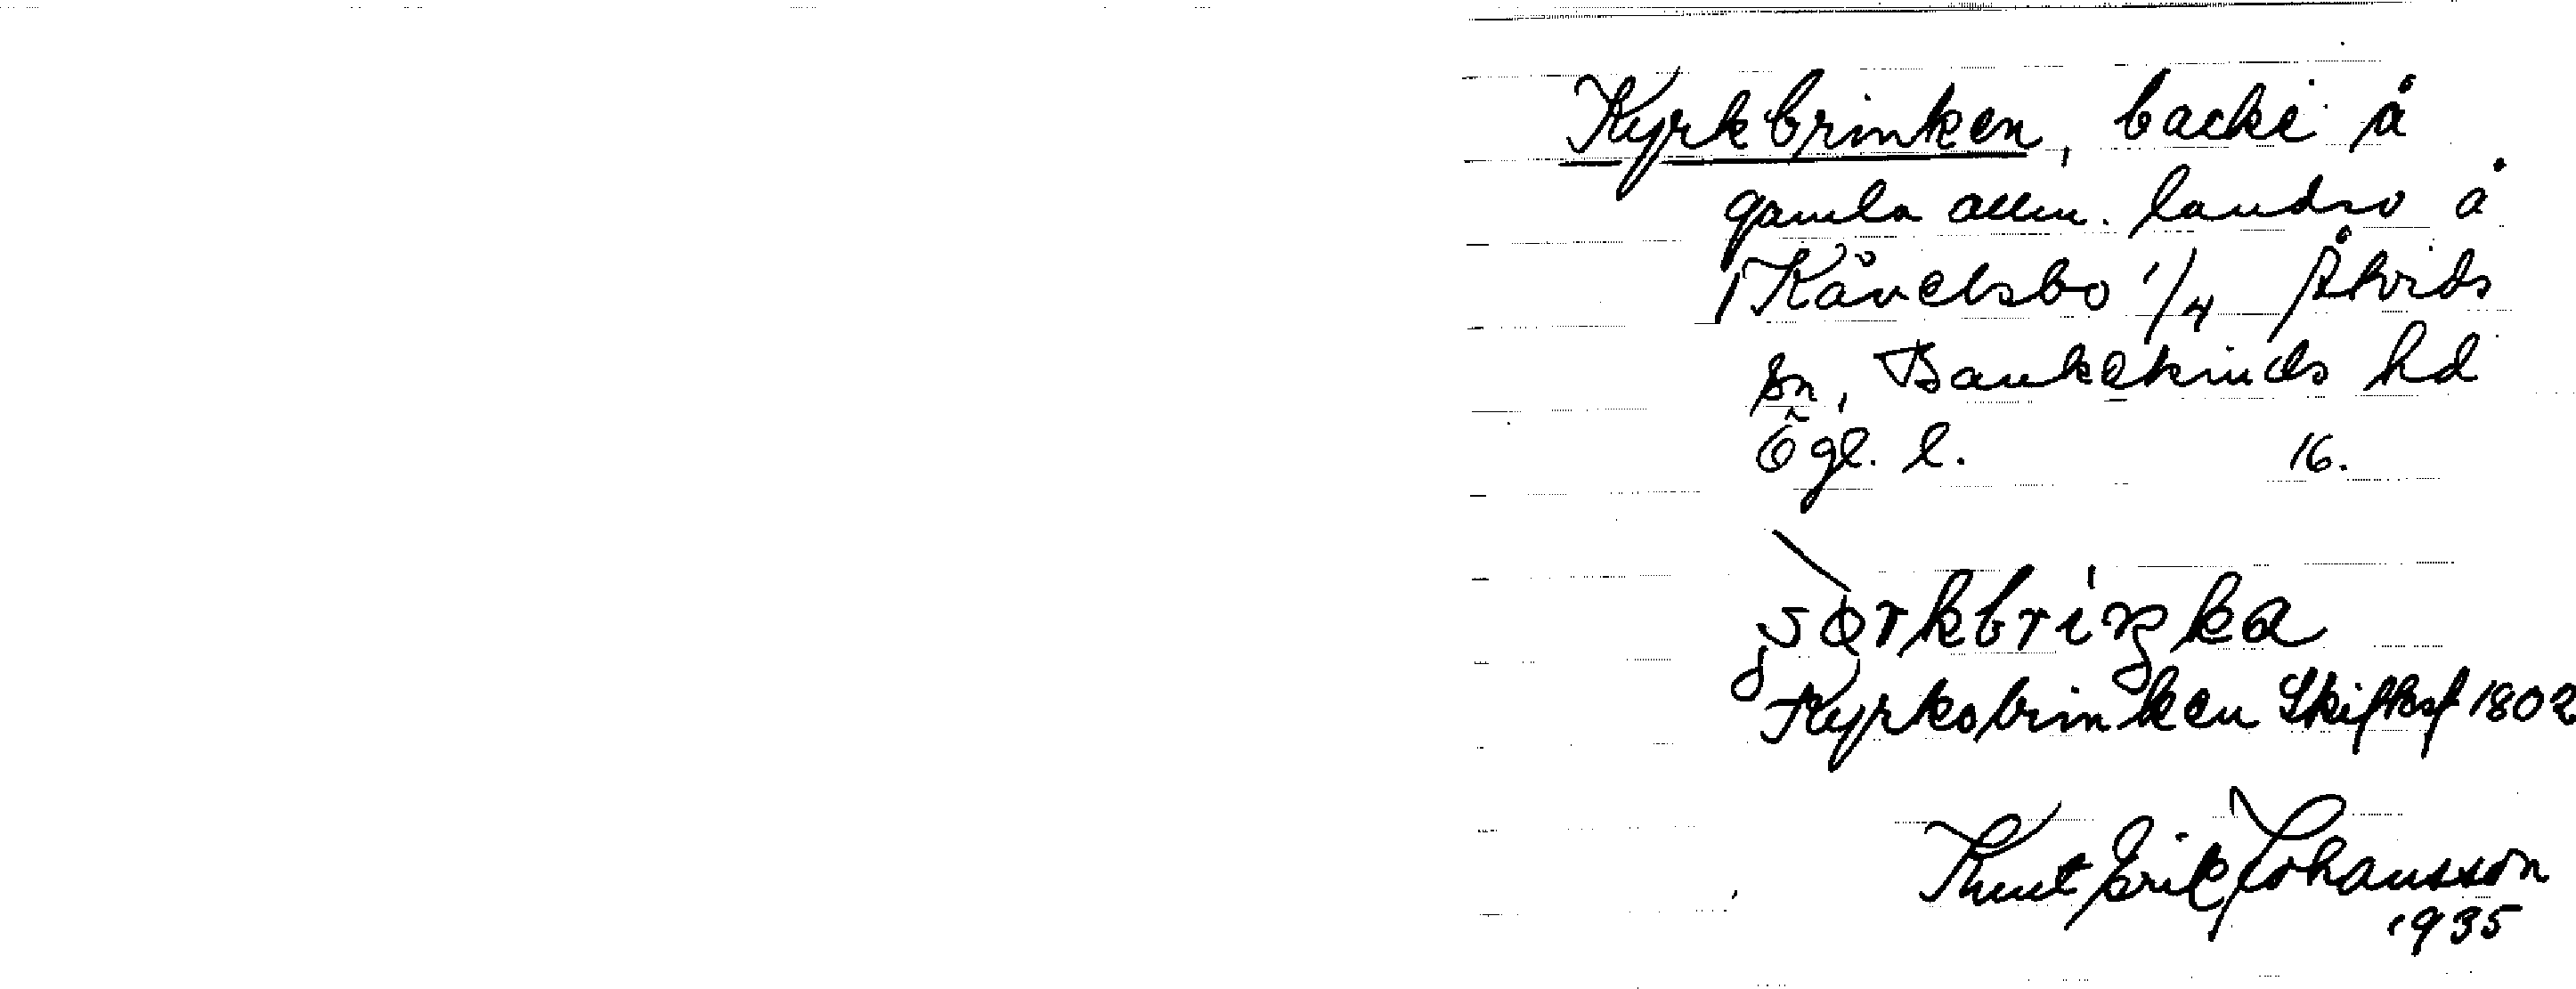 Kyrkbrinken, backe å
gamla allm. landsv å
Kåvelsbo 1/4 Åtvids
sn, Bankekinds hd
Ögl. l. 16.
Kyrkobrinken Skifteskf 1802
Knut Erik Johansson
1935